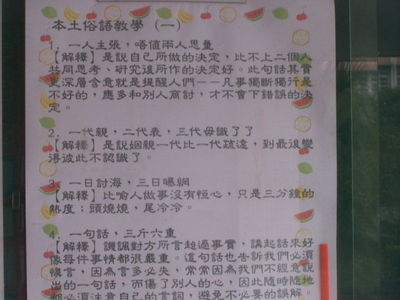 本土俗語教學（一）
1．一人主張，唔值兩人思量
【解釋】是說自己所做的決定，比不上二個人
共同思考、研究後所作的決定好。此句話其實
更深層含意就是提醒人們－－凡事獨斷獨行是
不好的，應多和別人商討，才不會下錯誤的決
定。
2．一代親，二代表，三代毋識了了
【解釋】是說姻親一代比一代疏遠，到最後變
得彼此不認識了。
3．一日討海，三日曝網
【解釋】比喻人做事沒有恒心，只是三分鐘的
熱度；頭燒燒，尾冷冷。
4．一句話，三斤六重
【解釋】譏諷對方所言超過事實，講起話來好
像每件事情都很嚴重。這句話也告訴我們必須
慎言，因為言多必失，常常因為我們不經意說
出的一句話，而傷了別人的心，因此隨時隨地
都必須注意自己的言詞，避免不必要的誤解。